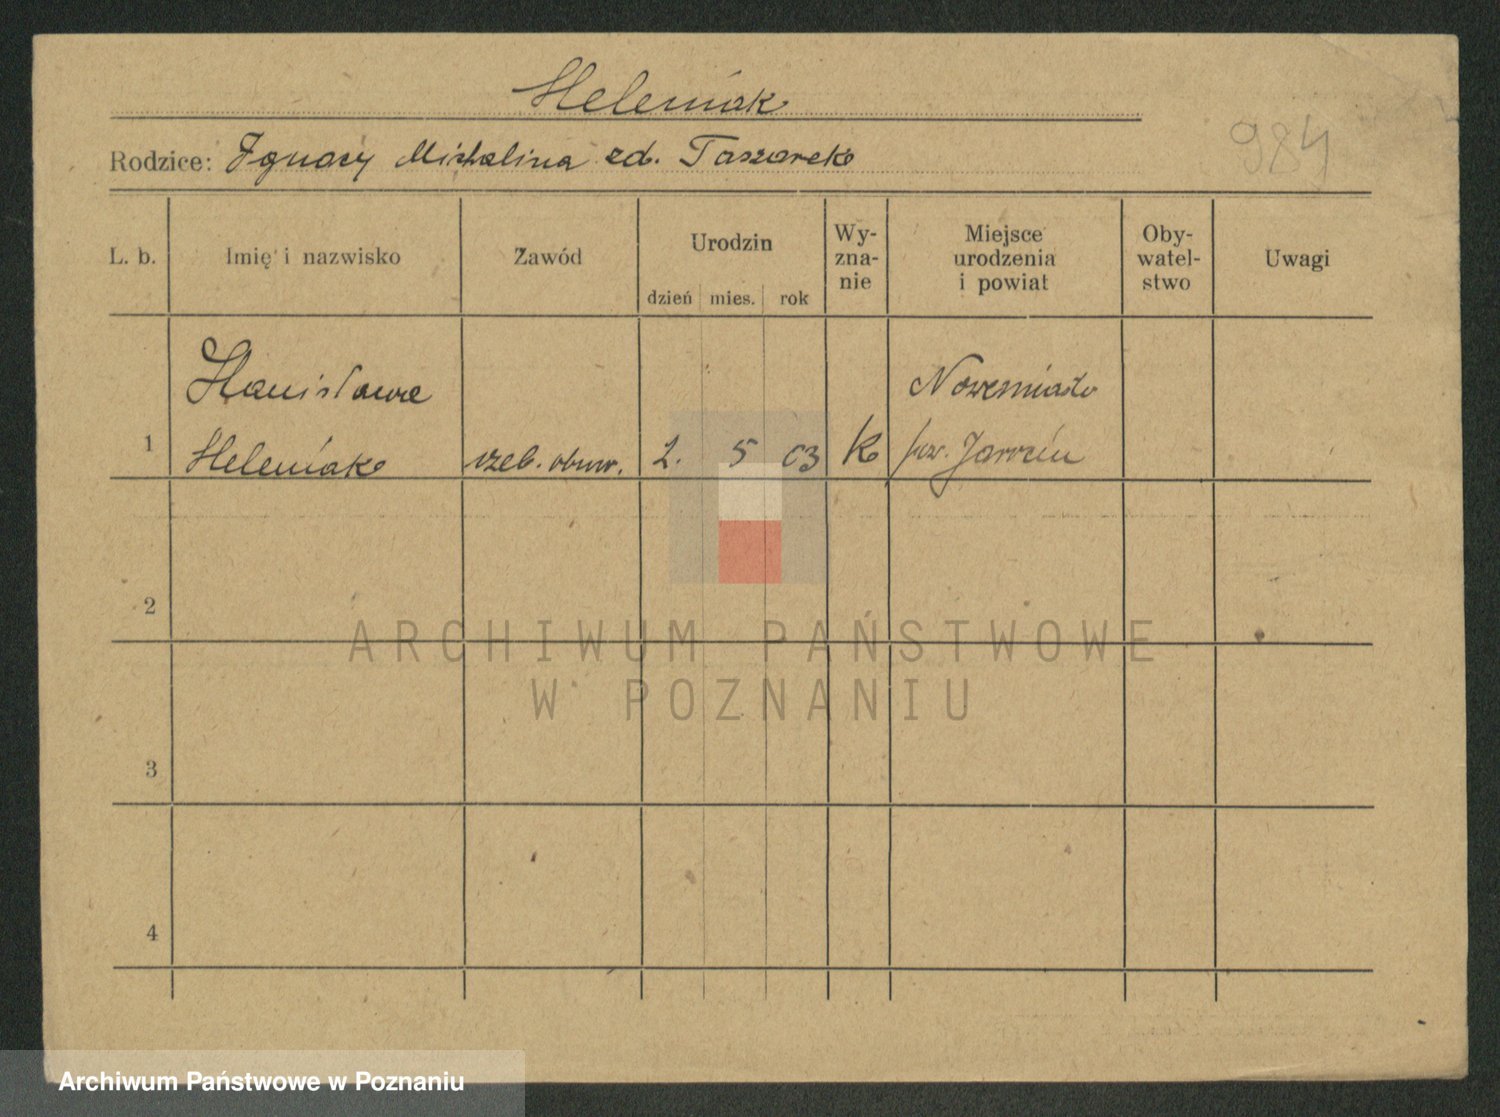 Heleniak
984
Rodzice: Ignacy Michalina zd. Taszarek
L. b.
Imię i nazwisko
Zawód
Urodzin
dzień mies. rok
Wy-
zna-
nie
Miejsce
urodzenia
i powiat
Oby-
watel-
stwo
Uwagi
Stanisława
Nowemiasto
1 Heleniak 2. 5 03 K pow. Jarocin
2
3
4
ARCHIWUM PAŃSTWOWE
W POZNANIU
Archiwum Państwowe w Poznaniu